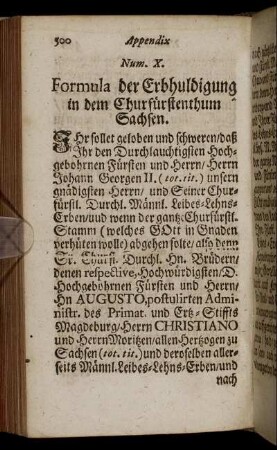 500 Appendix
Num. X.
Formula der Erbhuldigung
in dem Churfürstenthum
Sachsen.
IHr sollet geloben und schweren/daß
Ihr den Durchlauchtigsten Hoch-
gebohrnen Fürsten und Herrn/Herrn
Johann Georgen II. (tot. tit.) unsern
gnädigsten Herrn/ und Seiner Chur-
fürstl. Durchl. Männl. Leibes-Lehns-
Erben/und wenn der gantz-Churfürstl.
Stamm (welches GOtt in Gnaden
verhüten wolle) abgehen solte/ alsdenn
Sr. Churfl. Durchl. Hn. Brüdern/
denen respective, Hochwürdigsten/D.
Hochgebohrnen Fürsten und Herrn/
Hn AUGUSTO, postulirten Admi-
nistr. des Primat. und Ertz-Stiffts
Magdeburg/Herrn CHRISTIANO
und Herrn Moritzen/ allen Hertzogen zu
Sachsen (tot. tit.) und deroselben aller-
seits Männl. Leibes-Lehns-Erben/und
nach